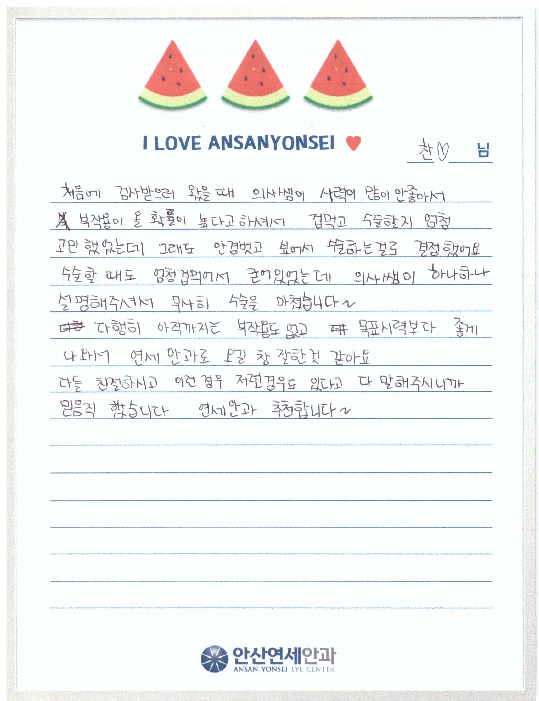 I LOVE ANSANYONSEI ♥
찬♡ 님
처음에 검사받으러 왔을때 의사쌤이 시력이 많이 안좋아서
부작용이 올 확률이 높다고 하셔서 겁먹고 수술할지 엄청
고민했었는데 그래도 안경벗고 싶어서 수술하는걸로 결정했어요
수술할 때도 엄청 겁먹어서 굳어있었는데 의사쌤이 하나하나
설명해주셔서 무사히 수술을 마쳤습니다~
다행히 아직까지는 부작용도 없고 목표시력보다 좋게
나와서 연세안과로 오길 참 잘한것 같아요
다들 친절하시고 이런경우 저런경우도 있다고 다 말해주시니까
믿음직 했습니다 연세안과 추천합니다~
안산연세안과
ANSAN YONSEI EYE CENTER